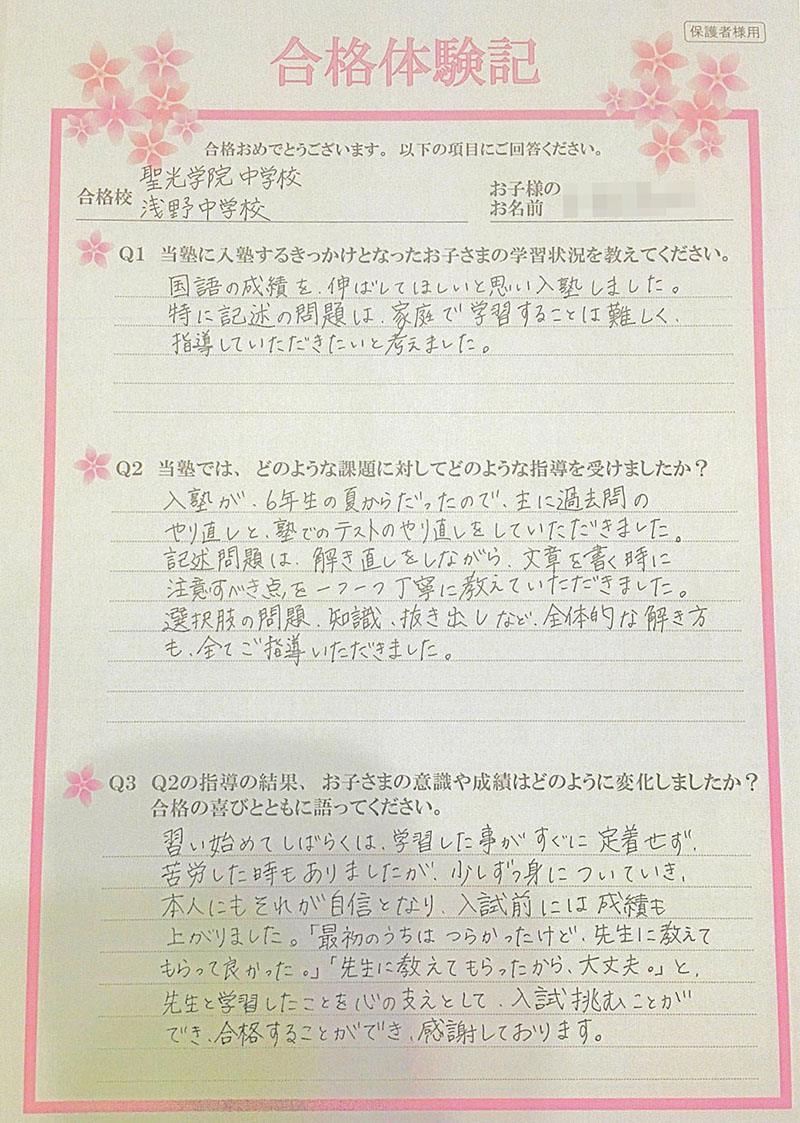 保護者様用
合格体験記
合格おめでとうございます。以下の項目にご回答ください。
合格校 聖光学院中学校
浅野中学校
お子様の
お名前
Q1 当塾に入塾するきっかけとなったお子さまの学習状況を教えてください。
国語の成績を、伸ばしてほしいと思い入塾しました。
特に記述の問題は、家庭で学習することは難しく、
指導していただきたいと考えました。
Q2 当塾では、どのような課題に対してどのような指導を受けましたか？
入塾が、6年生の夏からだったので、主に過去問の
やり直しと、塾でのテストのやり直しをしていただきました。
記述問題は、解き直しをしながら、文章を書く時に
注意すべき点を一つ一つ丁寧に教えていただきました。
選択肢の問題、知識、抜き出しなど、全体的な解き方
も、全てご指導いただきました。
Q3 Q2の指導の結果、お子さまの意識や成績はどのように変化しましたか？
合格の喜びとともに語ってください。
習い始めてしばらくは、学習した事がすぐに定着せず、
苦労した時もありましたが、少しずつ身についていき、
本人にもそれが自信となり、入試前には成績も
上がりました。「最初のうちはつらかったけど、先生に教えて
もらって良かった。」「先生に教えてもらったから、大丈夫。」と、
先生と学習したことを心の支えとして、入試挑むことが
でき、合格することができ、感謝しております。